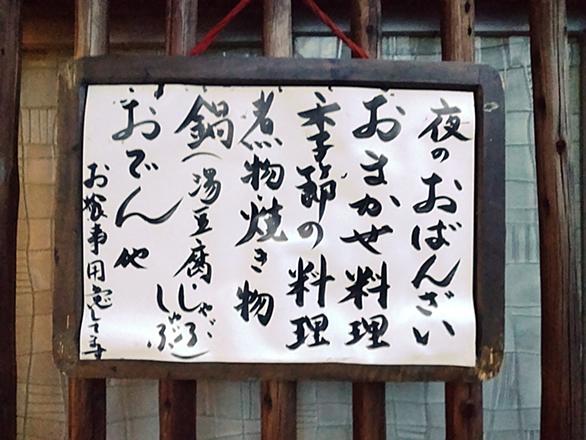 夜のおばんざい
おまかせ料理
季節の料理
煮物・焼き物
鍋(湯豆腐・しゃぶしゃぶ)
おでん他
お食事用意してます